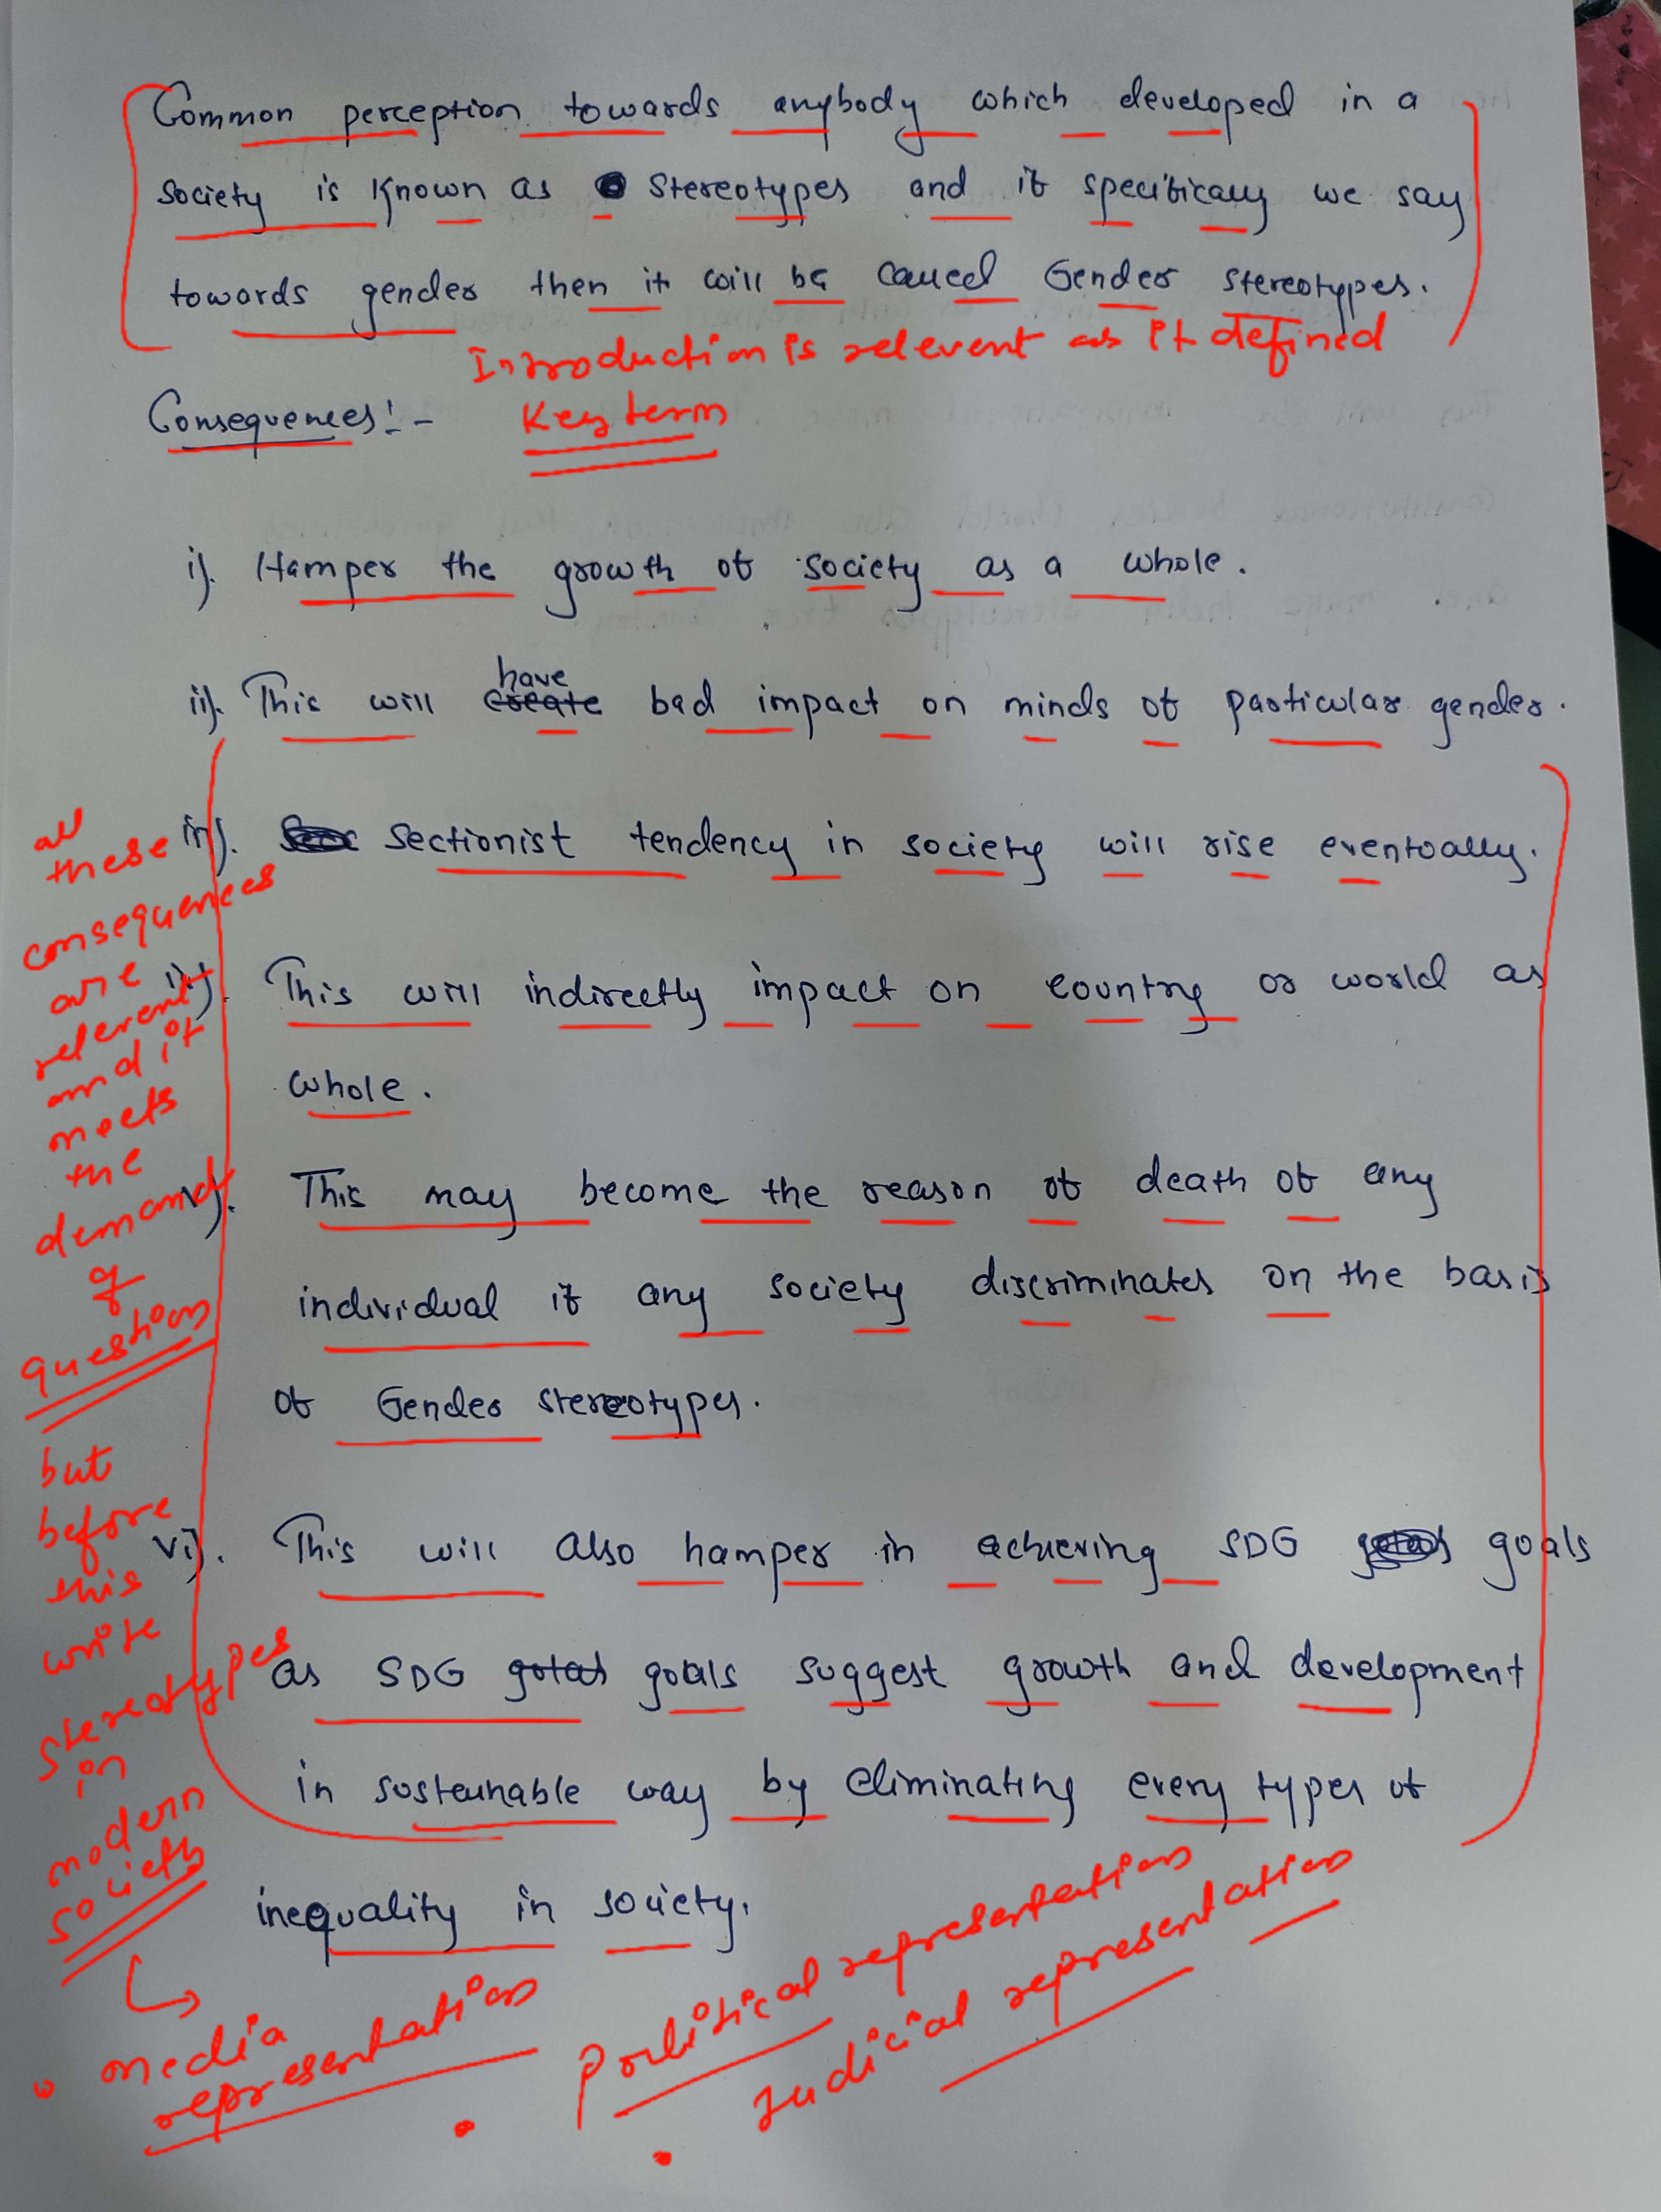 Common perception towards anybody which developed in a
society is known as stereotypes and if specifically we say
towards gender then it will be called Gender stereotypes.
Introduction is relevent as it defined
Key term
Consequences:-
i). Hamper the growth of society as a whole.
have
ii). This will create bad impact on minds of particular gender.
iii). Sectionist tendency in society will rise eventually.
iv). This will indirectly impact on country or world as
whole.
v). This may become the reason of death of any
individual if any society discriminates on the basis
of Gender stereotypes.
vi). This will also hamper in achieving SDG goals
as SDG gotas goals suggest growth and development
in sustainable way by eliminating every types of
inequality in society.
all
these
consequences
are
relevent
and it
meets
the
demand
of
question
but
before
this
write
stereotypes
in
modern
society
• media
representation
• Political representation
• Judicial representation